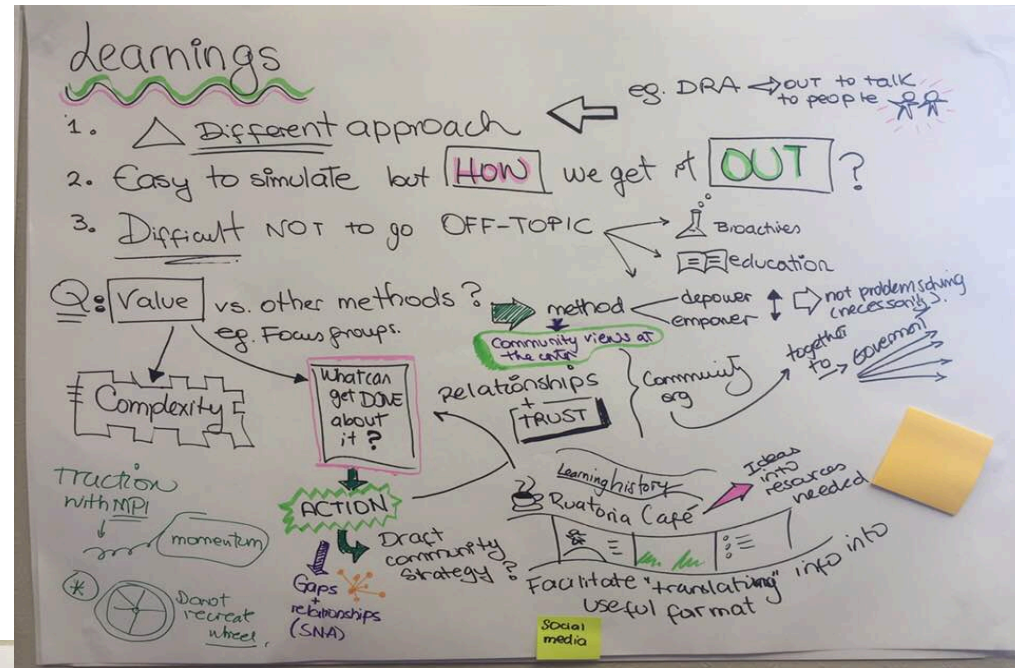 Learnings
eg. DRA → OUT to talk
to people
1. △ Different approach
2. Easy to simulate but HOW we get it OUT ?
3. Difficult NOT to go OFF-TOPIC
Broactives
education
Q: Value vs. other methods ?
eg. Focus groups.
method
depower
empower
not problem solving
(necessarily).
Community views at
the cntr
Complexity
What can
get DONE
about
it ?
Relationships
+
TRUST
Community
org
together
to → Government
Traction
with MPI
momentum
ACTION
Draft
community
strategy ?
Gaps
+
relationships
(SNA)
* Do not
recreat
wheel.
Learning history
Ruatoria Café
Ideas
into
resources
needed
Facilitate "translating" info into
useful format
Social
media